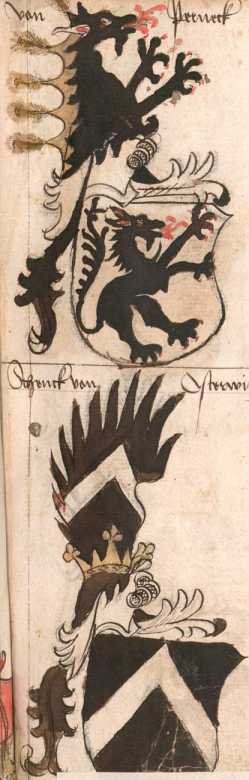 von Perneck
Schenck von Osterwi